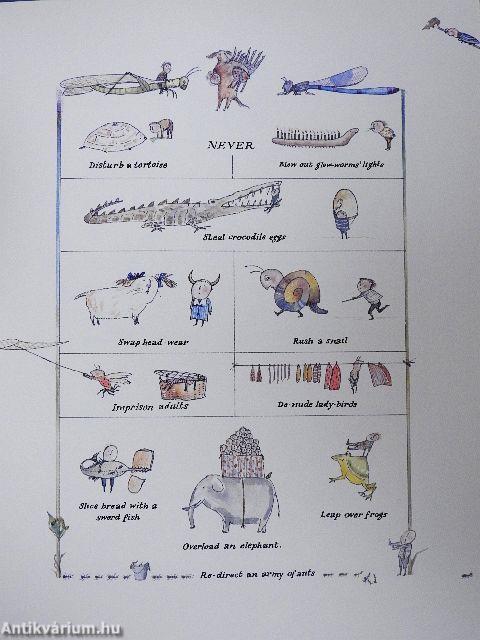 NEVER
Disturb a tortoise
Blow out glow-worms' lights
Steal crocodile eggs
Swap head-wear
Rush a snail
Imprison adults
De-nude lady-birds
Slice bread with a
sword fish
Leap over frogs
Overload an elephant.
Re-direct an army of ants
Antikvárium.hu
Antikvárium.hu